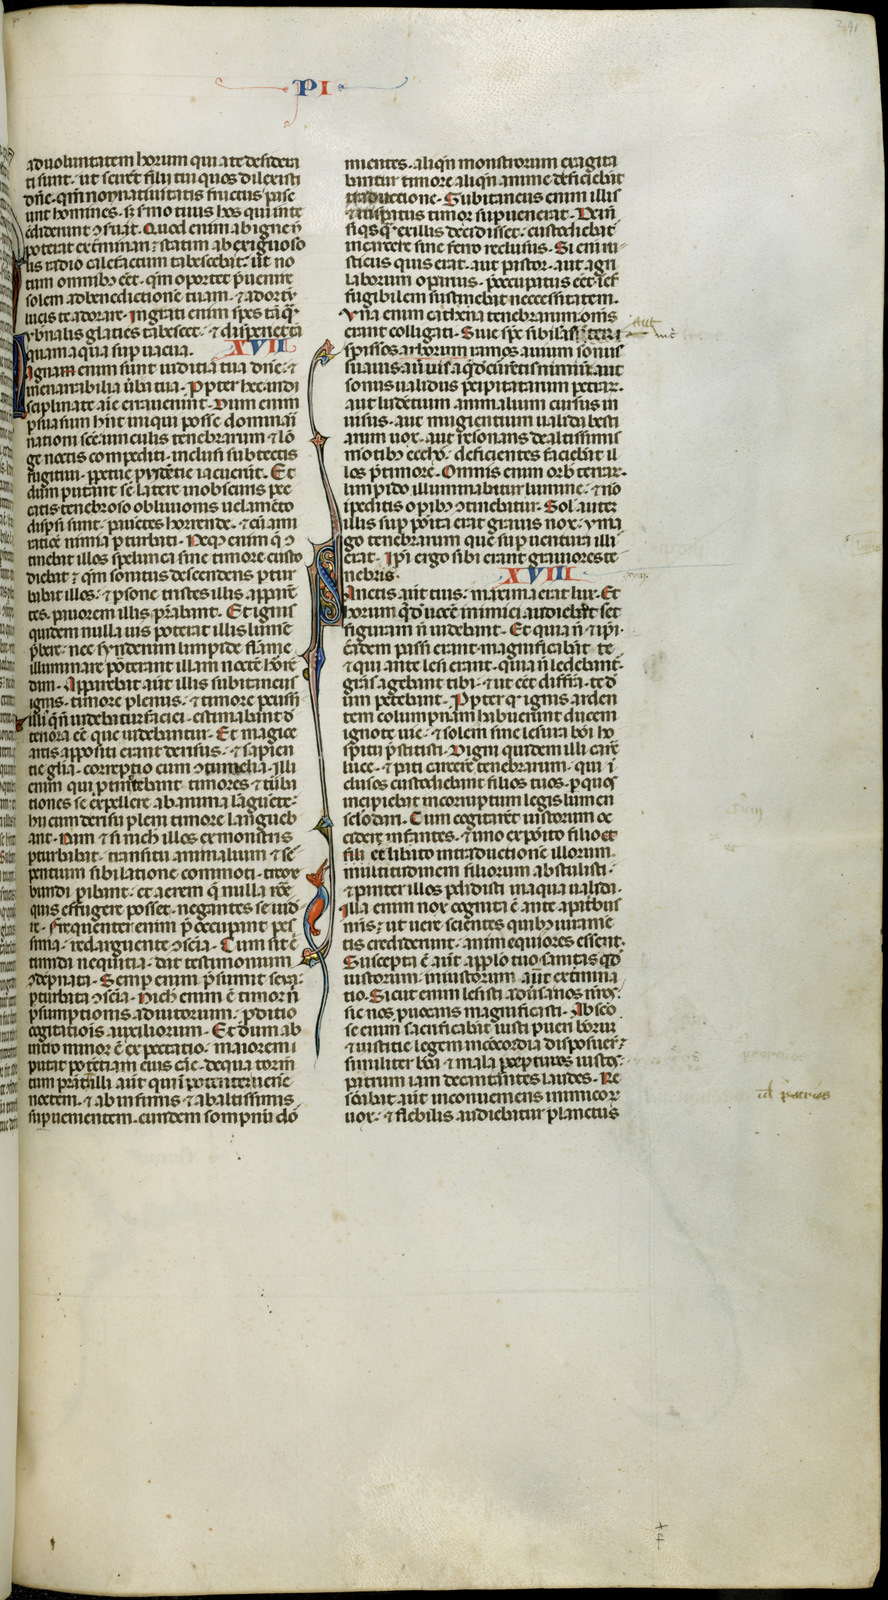 PI
ad uoluntatem horum qui a te desidera
ti sunt. ut scirent filii tui quos dilexisti
dñe. qm̃ non natiuitatis fructus pasc
unt homines. sꝫ sermo tuus hos qui in te
crediderint ↄseruat. Quod enim ab igne ñ
poterat extminari: statim ab exiguo so
lis radio calefactum tabescebat. ut no
tum omnibꝫ eēt. qm̃ oportet p̃uenire
solem ad benedictionē tuam. ⁊ ad ortū
lucis te adorare. Ingrati enim spes tāqͣ
ybnalis glacies tabescet. ⁊ disperiet tā
quam aqua supuacua. XVII
Magnam enim sunt iuditia tua dñe. ⁊
inenarrabilia ũba tua. Ppter hec indi
sciplinate aīe errauerunt. Dum enim
psuasum hñt iniqui posse dominari
nationi sc̄e: uinculis tenebrarum ⁊ lō
ge noctis compediti. inclusi sub tectis
fugitiui. ppetue puidētie iacuerūt. Et
dum putant se latere in obscuris pec
catis tenebroso obliuionis uelamēto
dispsi sunt. pauētes horrende. ⁊ cū ami
ratiōe nimia pturbati. Neqꝫ enim q̄ ↄ
tinebat illos spelunca sine timore custo
diebat. ⁊ qm̃ sonitus descendens ptur
babat illos. ⁊ psone tristes illis apparē
tes. pauorem illis p̃stabant. Et ignis
quidem nulla uis poterat illis lumē
p̃bere. nec syderum limpide flāme
illuminare poterant illam noctē horrē
dam. Apparebat aūt illis subitaneus
ignis. timore plenus. ⁊ timore pcussi
illiꝰ q̄ ñ uidebatur faciei. estimabant d
teriora eē que uidebantur. Et magice
artis appositi erant derisus. ⁊ sapien
tie gl̄ia. correptio cum ↄtumelia. Illi
enim qui pmittebant timores ⁊ tūba
tiones se expellere ab anima lāguēte:
hii cum derisu pleni timore langueb
ant. Nam ⁊ si nich illos ex monstris
pturbabat. transitu animalium ⁊ se
pentium sibilatione commoti. treme
bundi pibant. et aerem q̄ nulla rōe
quis effugere posset. negantes se uid
ē. Frequenter enim p̄occupant pes
sima. redarguente ↄscīa. Cum sit ē
timida nequitia. dat testimonium
ↄdēpnata. Semp enim p̄sumit seua
pturbata ↄscīa. Nich enim ē timor ñ
p̄sumptionis adiutorium. pditio
cogitatiois auxiliorum. Et dum ab
intro minor ē expectatio. maiorem i
putat potētiam eius cāe. de qua torm̄
tum p̄stat. Illi aūt qui ī potentē uenē
noctem. ⁊ ab infimis ⁊ ab altissimis
supuenientem. eundem sompnū dor
mientes. aliqñ monstrorum exagita
bantur timore. aliqñ anime deficiebāt
traductione. Subitaneus enim illis
⁊ insperatus timor supuenerat. Deīn
si qsqͣ ex illis decidisset. custodiebat͛
in carcere sine ferro reclusus. Si enim
sticus quis erat. aut pastor. aut agri
laborum opariꝰ. p̄occupatus eēt. īef
fugibilem sustinebat neccessitatem.
Vna enim cathena tenebrarum om̄s
erant colligati. Siue sp̄c sibilās.
spissos arborum ramos auium sonus
suauis. aū uis aq̄ decurrētis nimiū. aut
sonus ualidus p̄cipitatarum petrar.
aut ludētium animalium cursus in
uisus. aut mugientium ualida besti
arum uox. aut resonans de altissimis
mōtibꝫ eccho. deficientes faciebāt il
los p̄ timore. Omnis enim orb terrar.
limpido illuminabatur lumine. ⁊ nō
īpeditis opibꝫ ↄtinebatur. Sol. autē
illis supposita erat grauis nox. yma
go tenebrarum que supuentura illi
erat. Ipi ergo sibi erant grauiores te
nebris. XVIII
Sanctis aūt tuis. maxima erat lux. Et
horum q̄d uocē inimici audiebāt set
figuram ñ uidebant. Et quia ñ ⁊ ip̄i.
eadem passi erant. magnificabāt te
⁊ qui ante lesi erant. quia ñ ledebant͛.
grās agebant tibi. ⁊ ut eēt differē. te d
um petebant. Ppter qͣ ignis arden
tem columpnam habuerunt ducem
ignote uie. ⁊ solem sine lesura boni ho
spitii p̄stitisti. Digni quidem illi carē
luce. ⁊ pati carcerē tenebrarum. qui ī
clusos custodiebant filios tuos. p quos
incipiebat incorruptum legis lumen
sc̄lo dari. Cum cogitarēt iustorum oc
cidere infantes. ⁊ uno exposito filio et
fili et libato in traductione illorum.
multitudinem filiorum abstulisti.
⁊ pariter illos pdidisti in aqua ualida.
Illa enim nox cognita ē ante a patribus
nr̄is: ut uere scientes quibꝫ iuramē
tis crediderunt. animequiores essent.
Suscepta ē aūt a pplo tuo sanitas qd
iustorum. iniustorum aūt extmina
tio. Sicut enim lesisti aduersarios nr̄os.
sic nos puocans magnificasti. Absco
se enim sacrificabāt iusti pueri bonor
⁊ iustitie legem in ↄcordia disposuer̄t.
similiter bōa ⁊ mala pcepturos iustos.
patrum iam decantantes laudes. Re
sōabat aūt inconueniens inimicor
uox. ⁊ flebilis audiebatur planctus